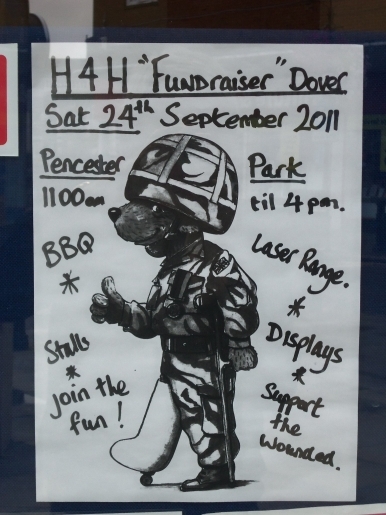 H4H "Fundraiser" Dover
Sat 24th September 2011
Pencester Park
1100am til 4pm.
BBQ
*
Stalls
*
Join the
fun!
Laser Range.
*
Displays
*
Support
the
Wounded.